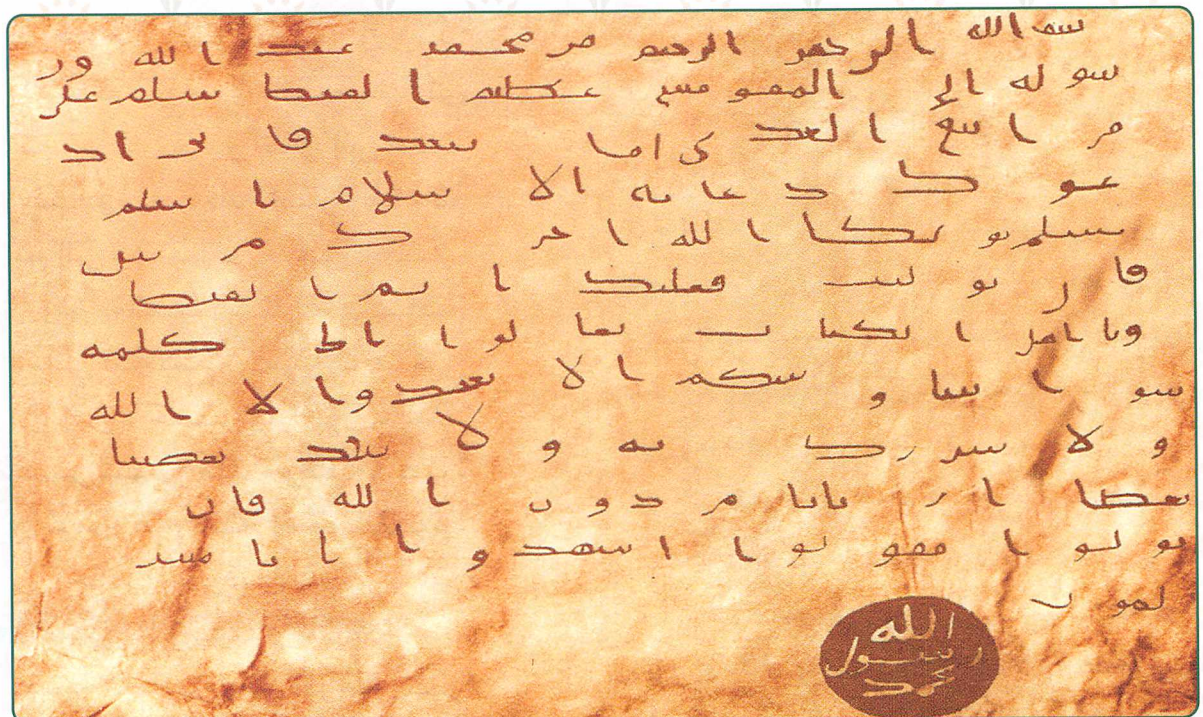 بسم الله الرحمن الرحيم من محمد عبد الله ور
سوله إلى المقوقس عظيم القبط سلم على
من اتبع الهدى اما بعد فانى اد
عوك بدعاية الاسلام اسلم
تسلم يوتك الله اجرك مرتين
فان توليت فعليك اثم القبط
ويا اهل الكتاب تعالوا الى كلمة
سوا بيننا وبينكم الا نعبدوا الا الله
ولا نشرك به ولا يتخذ بعضنا
بعضا اربابا من دون الله فان
تولوا فقولوا اشهدوا بانا مسـ
لمون
الله
رسول
محمد